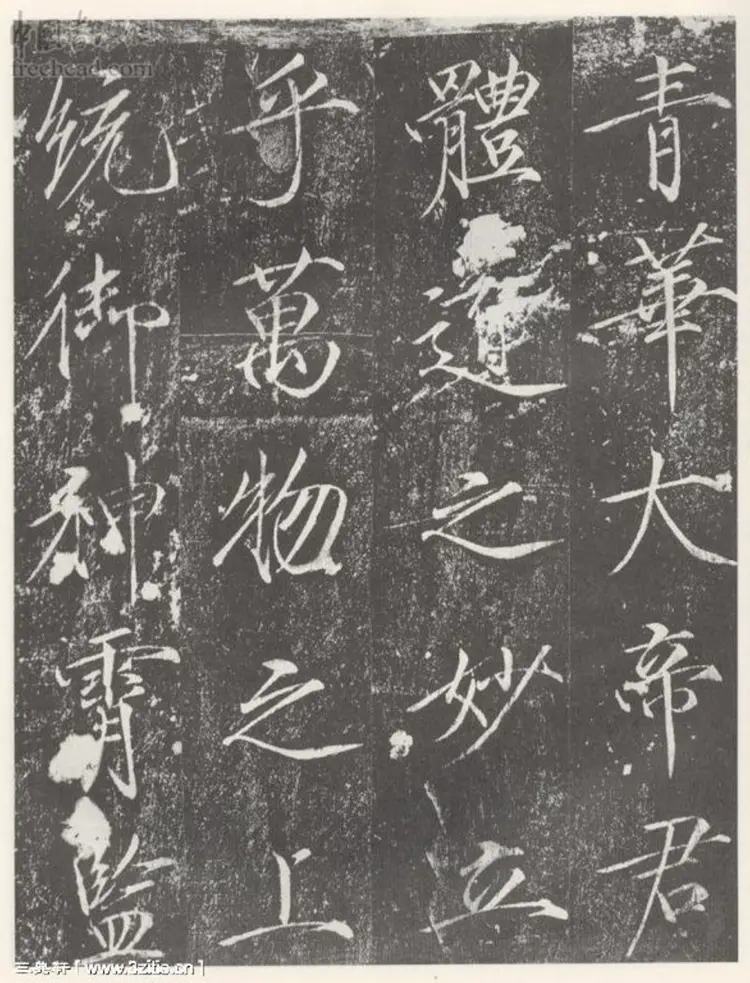 青華大帝君
體道之妙立
乎萬物之上
統御神霄監
freehead.com
三典轩【www.3zitie.cn】